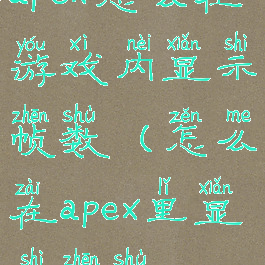 yóu xì nèi xiǎn shì
游戏内显示
zhēn shù zěn me
帧数（怎么
zài lǐ xiǎn
在apex里显
shì zhēn shù